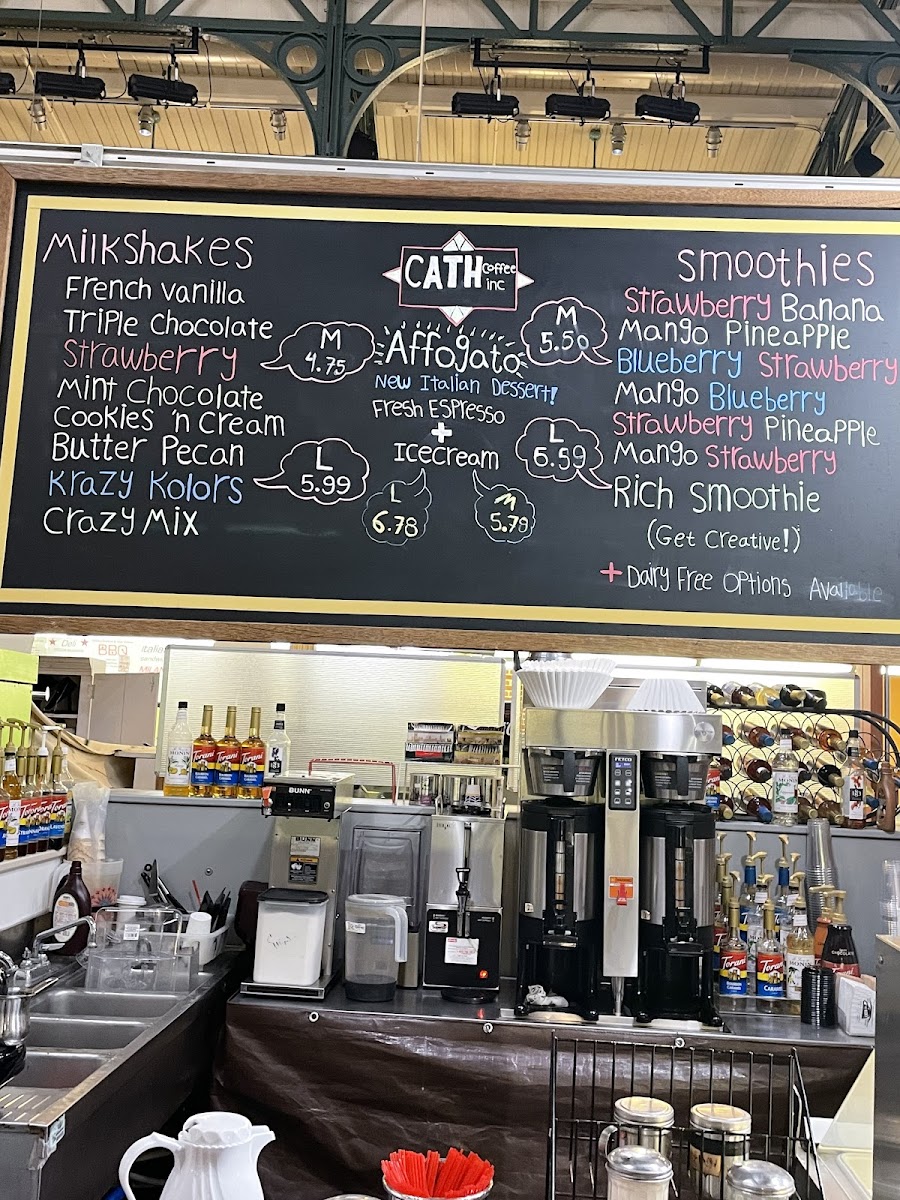 Milkshakes
French vanilla
Triple chocolate
Strawberry
Mint Chocolate
Cookies 'n Cream
Butter Pecan
Krazy Kolors
Crazy Mix
M
4.75
L
5.99
CATH coffee
inc
Affogato
New Italian Dessert!
Fresh Espresso
+
Icecream
L
6.78
M
5.78
M
5.50
L
6.59
Smoothies
Strawberry Banana
Mango Pineapple
Blueberry Strawberry
Mango Blueberry
Strawberry Pineapple
Mango Strawberry
Rich Smoothie
(Get Creative!)
+ Dairy Free Options Available
Deli
BBQ
MONIN
Torani
Torani
Torani
BUNN
FETCO
Torani
Torani
CARAMEL
CHOCOLATE